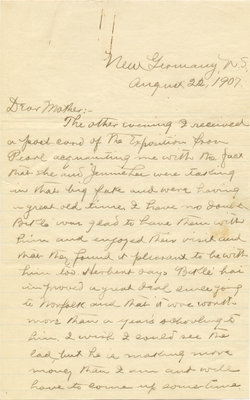 New Germany, N.S.
August 26, 1907.
Dear Mother:-
The other evening I received
a post card of the Exposition from
Pearl acquainting me with the fact
that she and Jennie her were taking
in that big fake and were having
a great old time. I have no doubt
was glad to have them with
him and enjoyed their visit and
that they found it pleasant to be with
him too. Herbert says has
improved a great deal since going
to Norfolk and that it were worth
more than a years schooling to
him. I wish I could see the
lad, but he is making more
money than I am and will
have to come up sometime